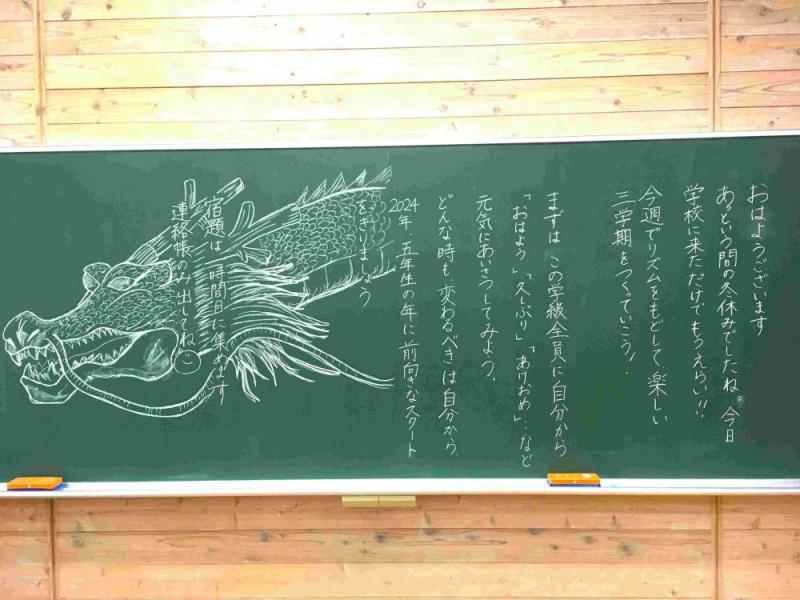 おはようございます
あっという間の冬休みでしたね。今日
学校に来ただけでもうえらい!!
今週でリズムをもどして、楽しい
三学期をつくっていこう!
まずは、この学級全員に自分から
「おはよう」「久しぶり」「あけおめ」…など
元気にあいさつしてみよう。
どんな時も、変わるべきは自分から。
2024年、五年生の年に前向きなスタート
をきりましょう
宿題は一時間目に集めます
連絡帳のみ出してね